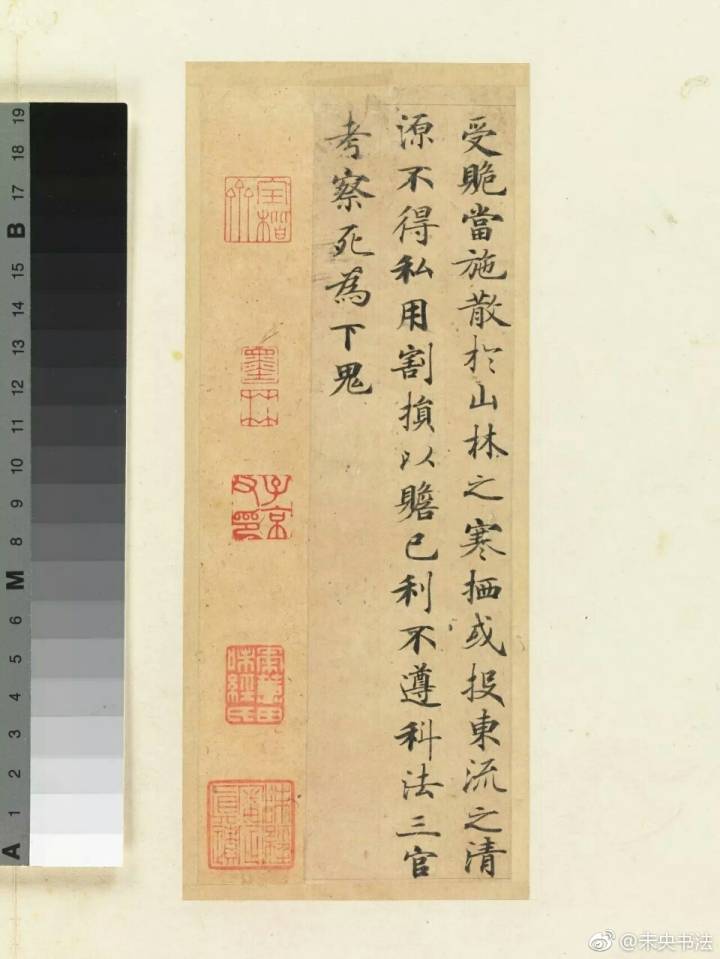 受賍當施散於山林之寒栖或投東流之清
源不得私用割損以贍己利不遵科法三官
考察死為下鬼
子京
父印
19
18
17
B
15
14
13
12
11
10
9
8
M
6
5
4
3
2
1
A
@未央书法